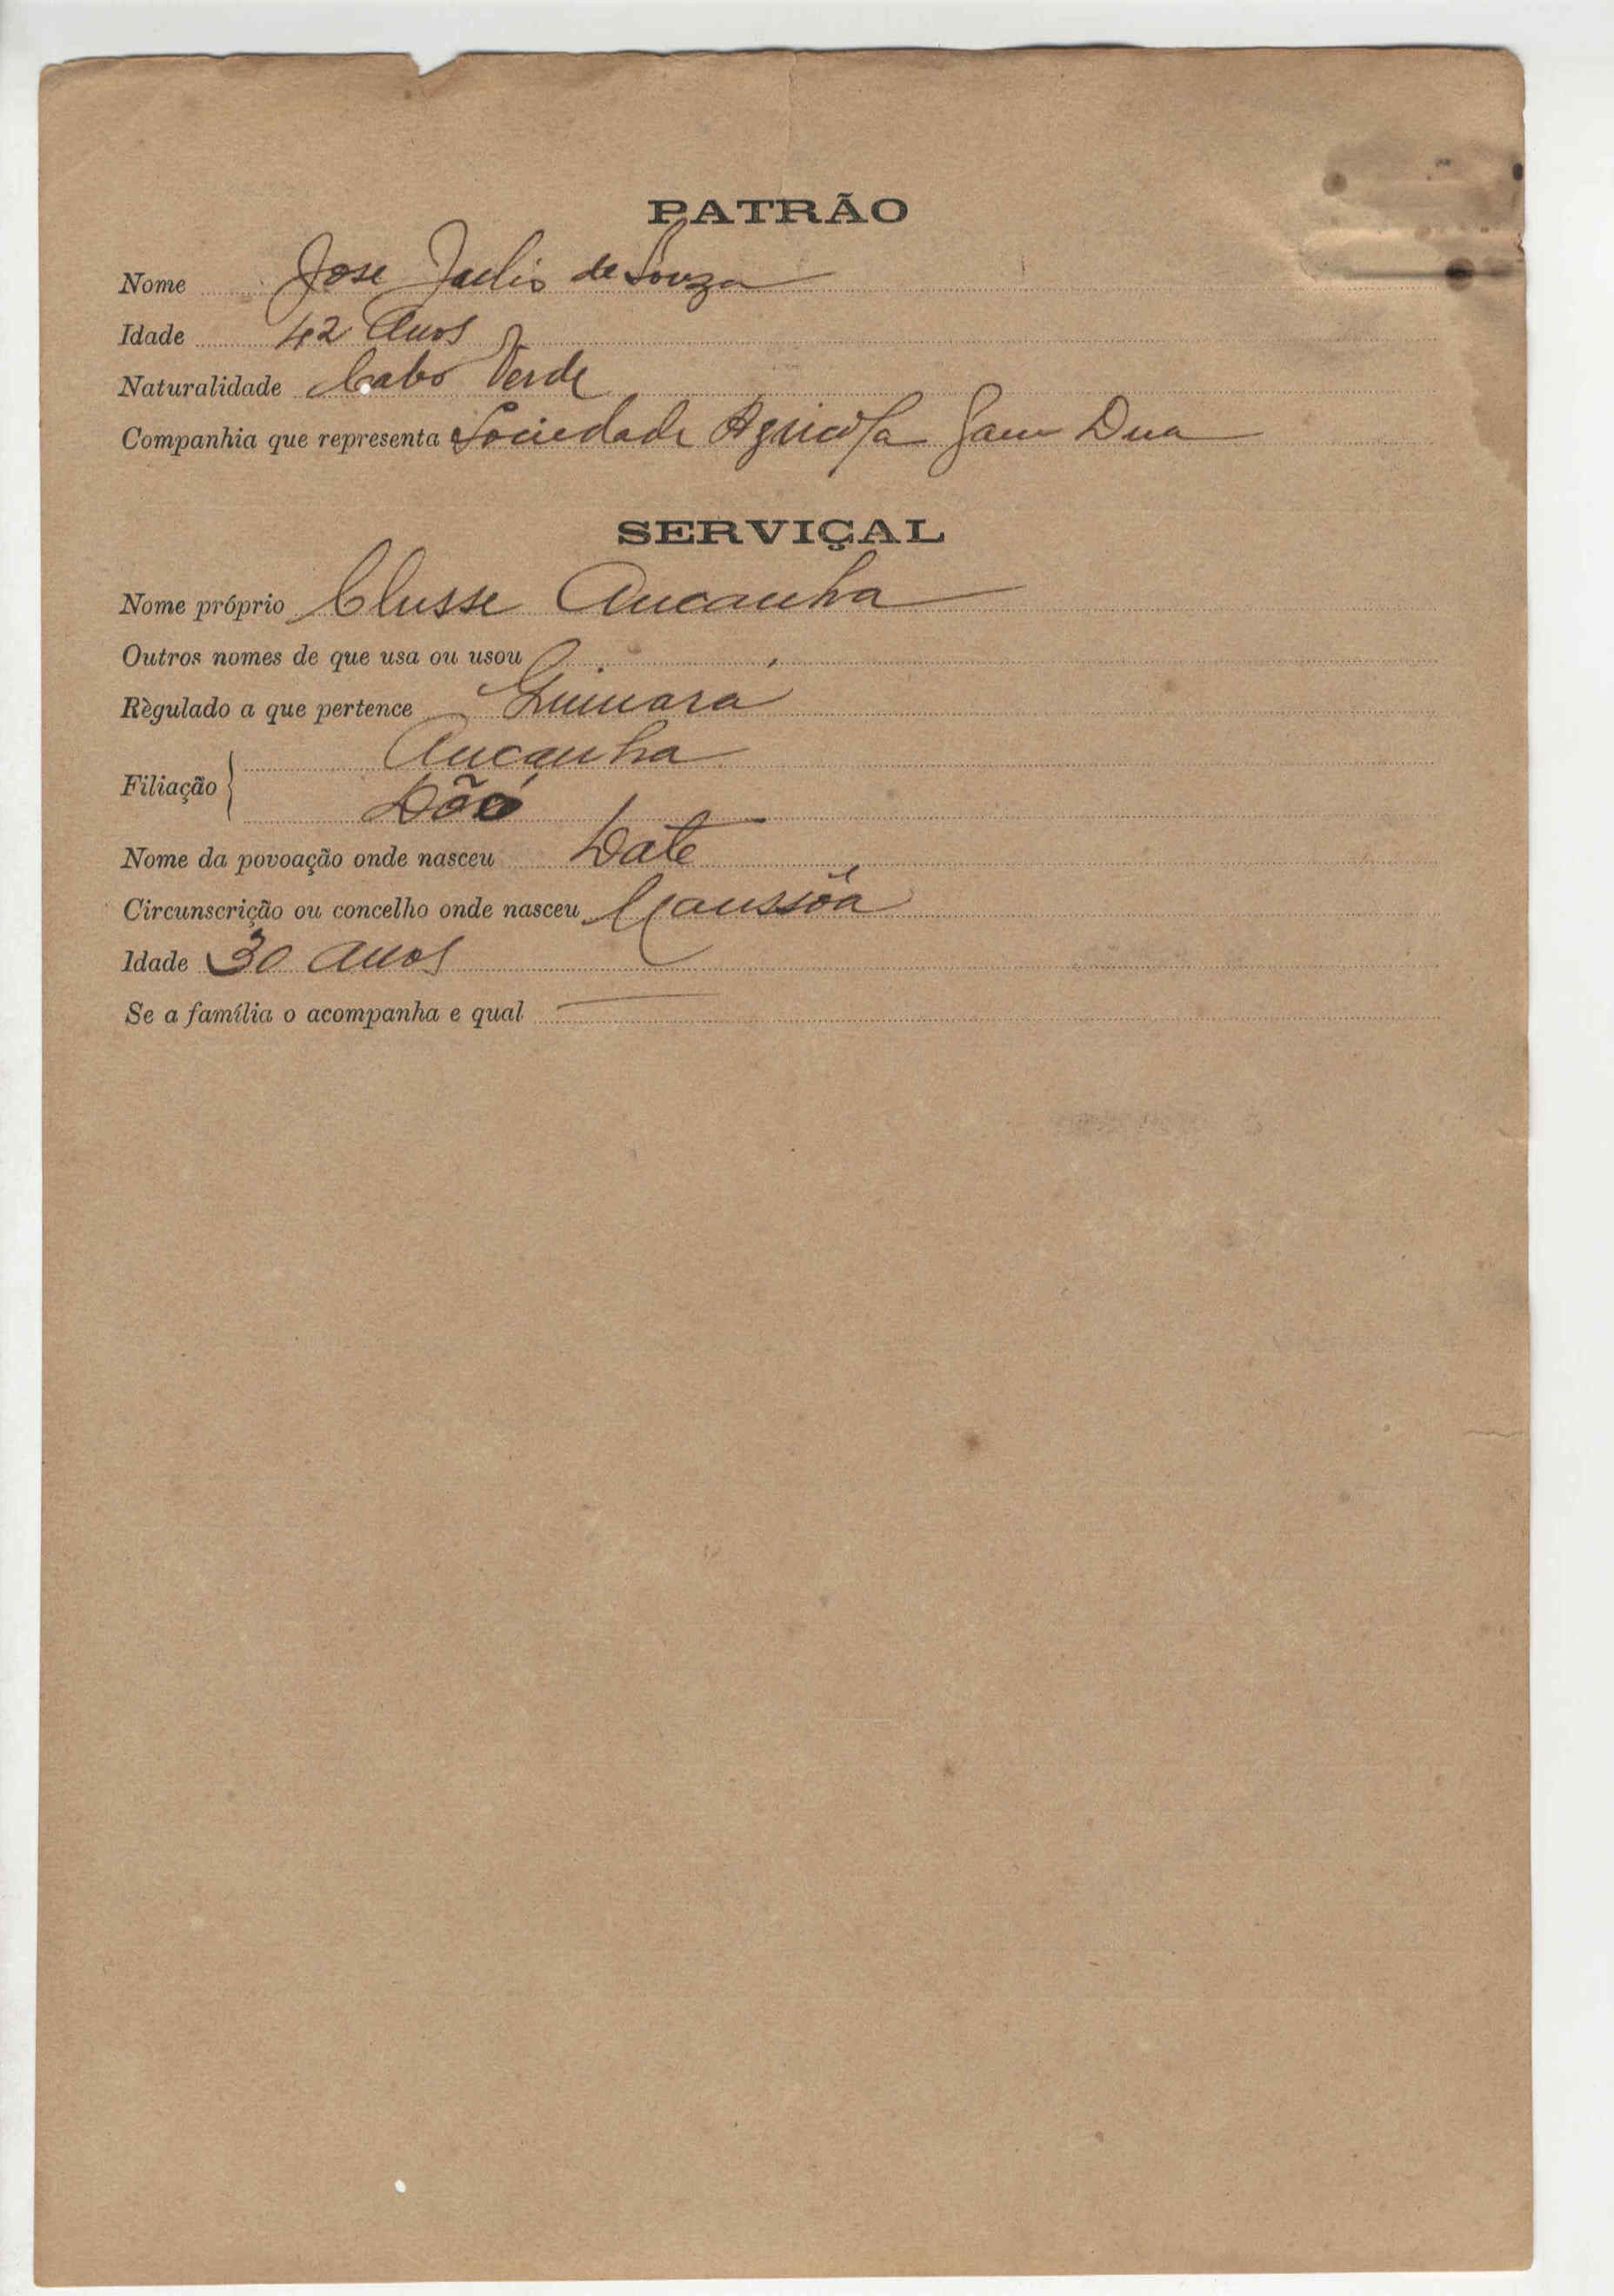 PATRÃO
Nome Jose Julio de Souza
Idade 42 Anos
Naturalidade Cabo Verde
Companhia que representa Sociedade Agricola Gam Dua
SERVIÇAL
Nome próprio Clusse Ancanha
Outros nomes de que usa ou usou
Règulado a que pertence
Ancanha
Filiação
Nome da povoação onde nasceu Date
Circunscrição ou concelho onde nasceu Manssôa
Idade 30 anos
Se a família o acompanha e qual